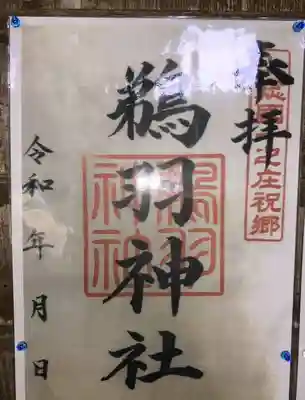 奉拝
庄祝郷
鵜羽神社
鵜羽神社
令和 年 月 日